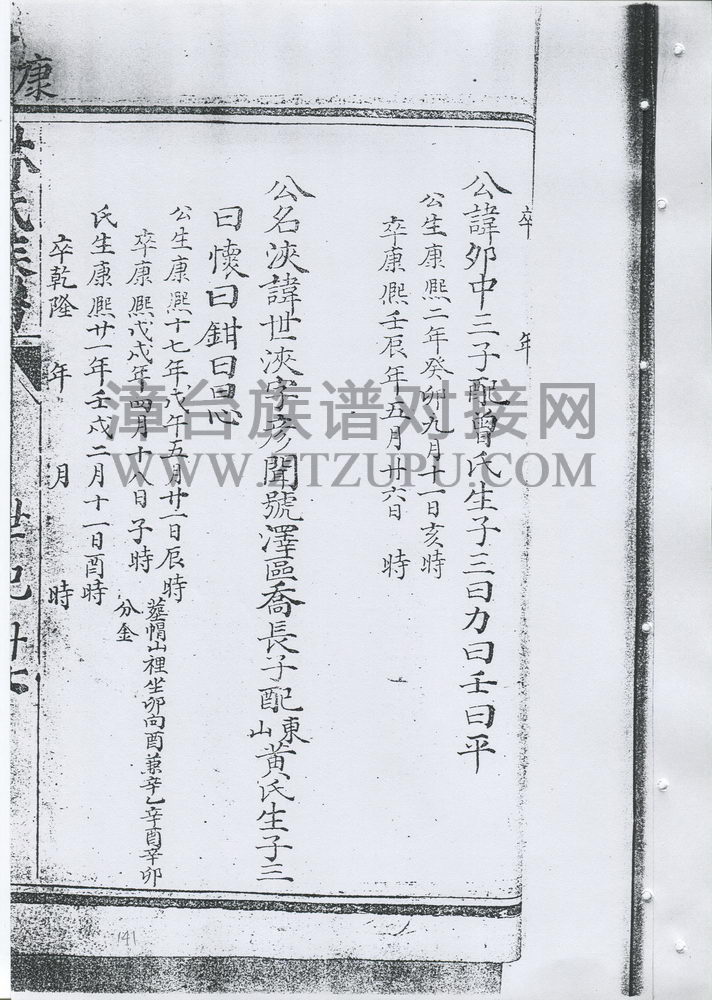 卒 年
公諱夘中三子配曾氏生子三曰力曰壬曰平
公生康熙二年癸卯九月十一日亥時
卒康熙壬辰年五月廿六日 時
公名浹諱世浹字彥聞號澤區喬長子配東山黃氏生子三
曰懷曰鉗曰忍
公生康熙十七年戊午五月廿一日辰時
卒康熙戊戌年四月十八日子時
墓帽山裡坐卯向酉兼辛乙辛酉辛卯
分金
氏生康熙廿一年壬戌二月十一日酉時
卒乾隆 年 月 時
林氏族譜
世紀
康
漳台族谱对接网
WWW.ZTZUPU.COM
141